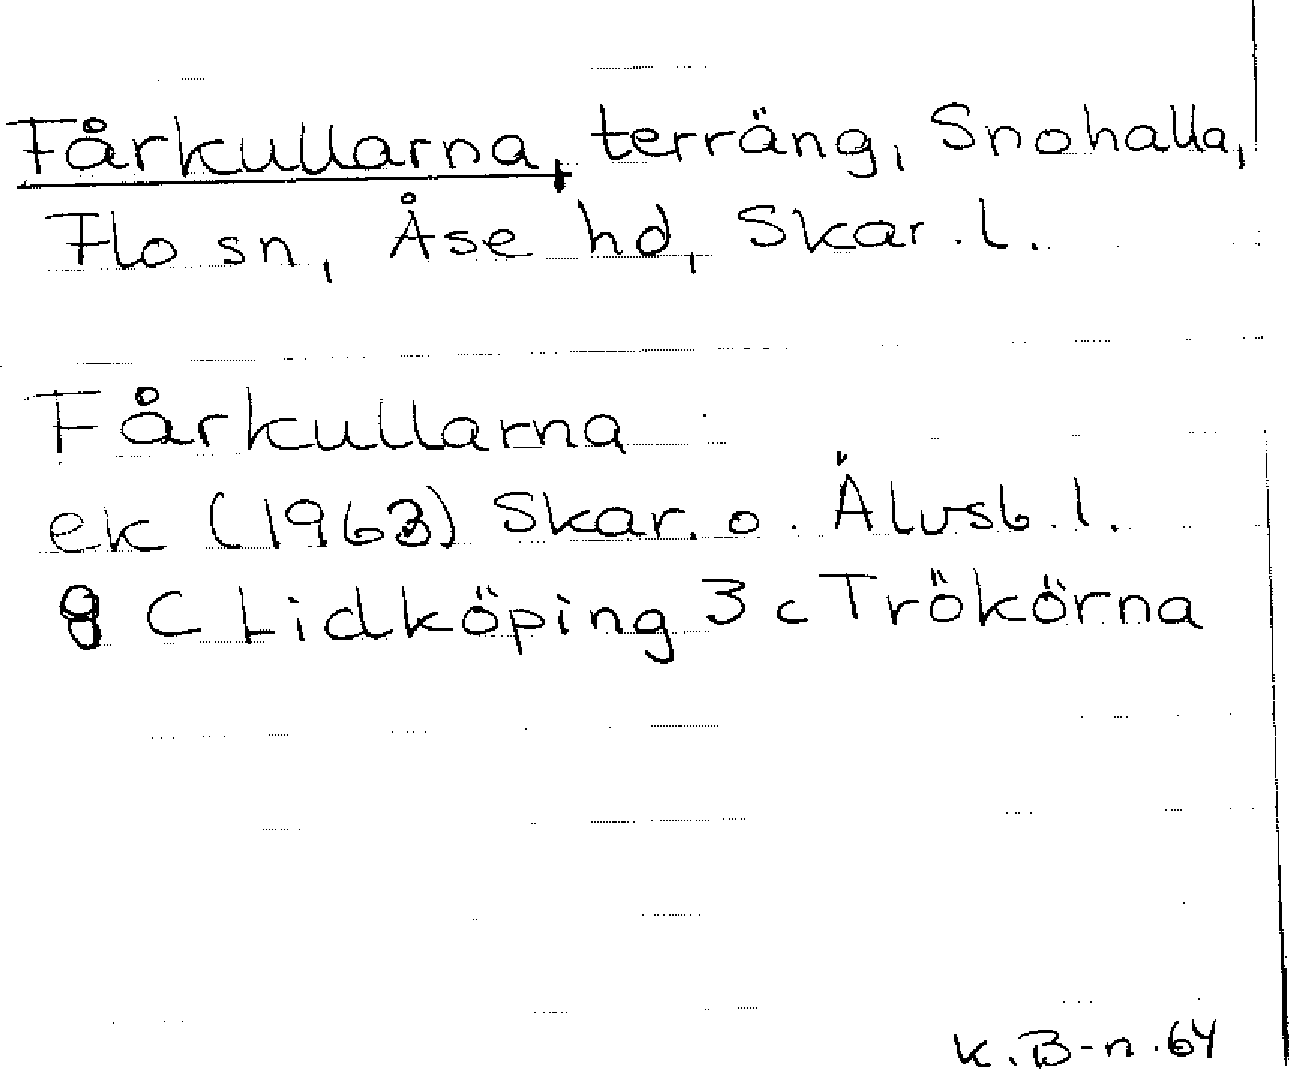 Fårkullarna, terräng, Snohalla,
Flo sn, Åse hd, Skar. l.
Fårkullarna
ek (1963) Skar. o. Älvsb. l.
8 C Lidköping 3 c Trökörna
K. B-n. 64